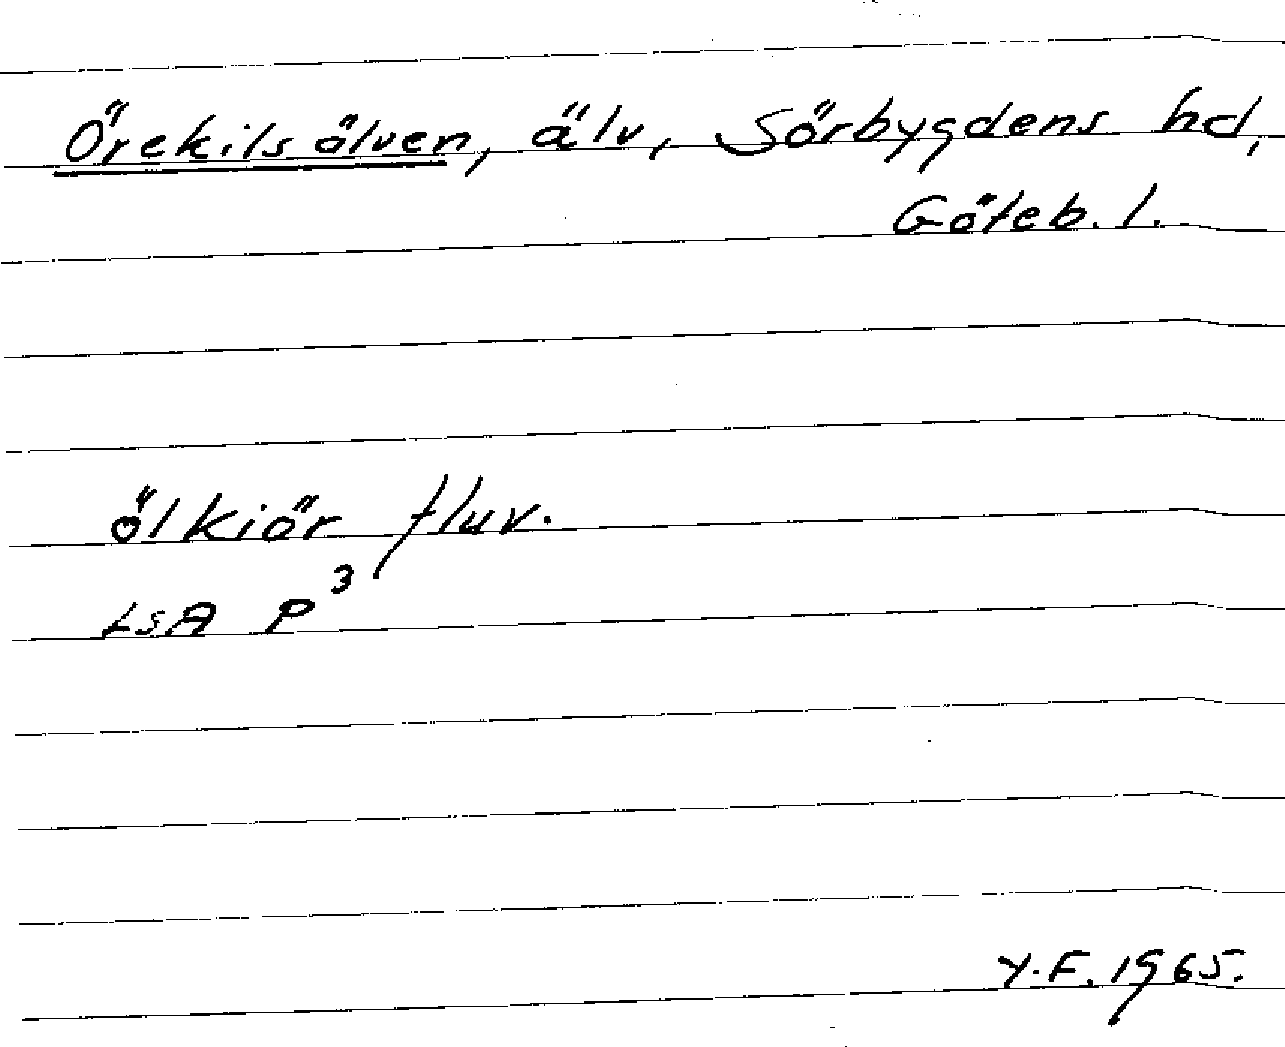 Örekilsälven, älv, Sörbygdens hd,
Göteb. l.
ölkiör fluv.
LSA P³
Y.F. 1965.